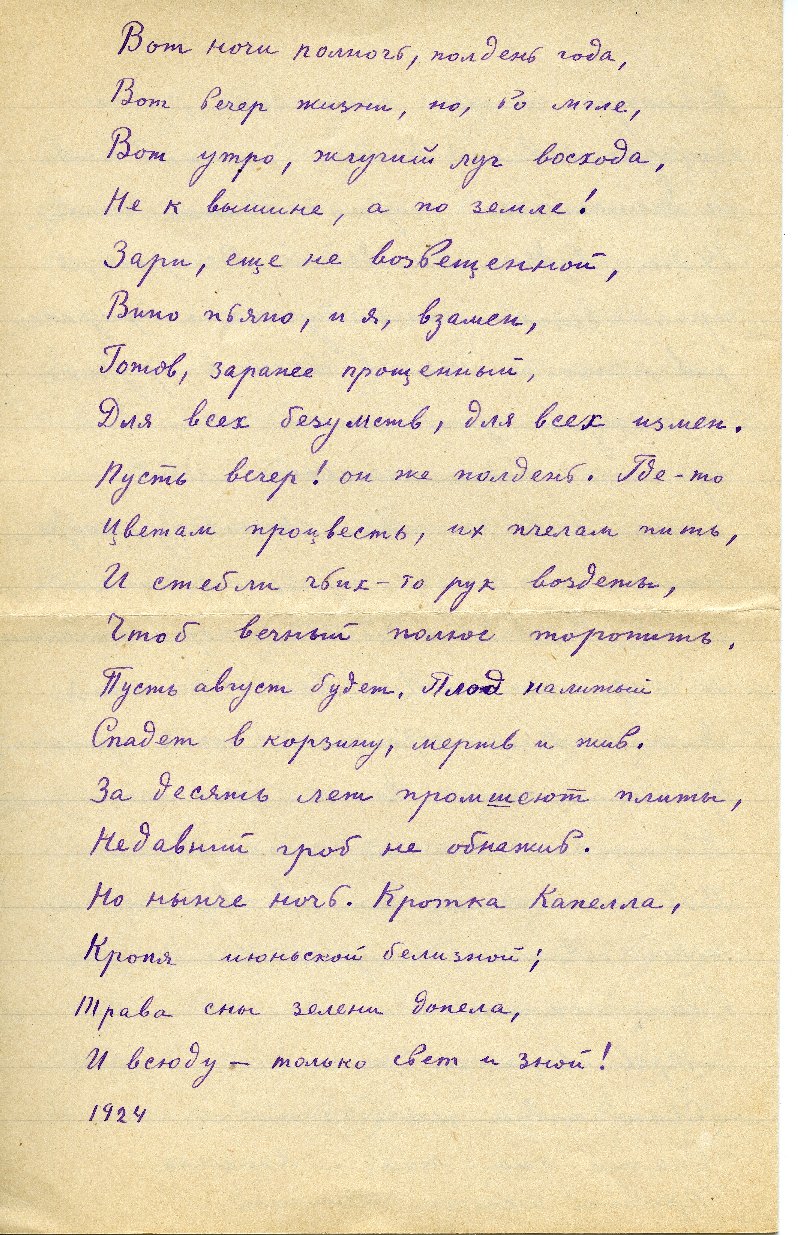 Вот ночи полночь, полдень года,
Вот вечер жизни, но, во мгле,
Вот утро, жгучий луч восхода,
Не к вышине, а по земле!
Зари, еще не возвещенной,
Вино пьяно, и я, взамен,
Готов, заранее прощенный,
Для всех безумств, для всех измен.
Пусть вечер! он же полдень. Где-то
Цветам процвесть, их пчелам пить,
И стебли чьих-то рук воздеты,
Чтоб вечный полюс торопить.
Пусть август будет. Плод налитый
Спадет в корзину, мертв и жив.
За десять лет промшеют плиты,
Недавний гроб не обнажив.
Но нынче ночь. Кротка Капелла,
Кропя июньской белизной;
Трава сны зелени допела,
И всюду – только свет и зной!
1924